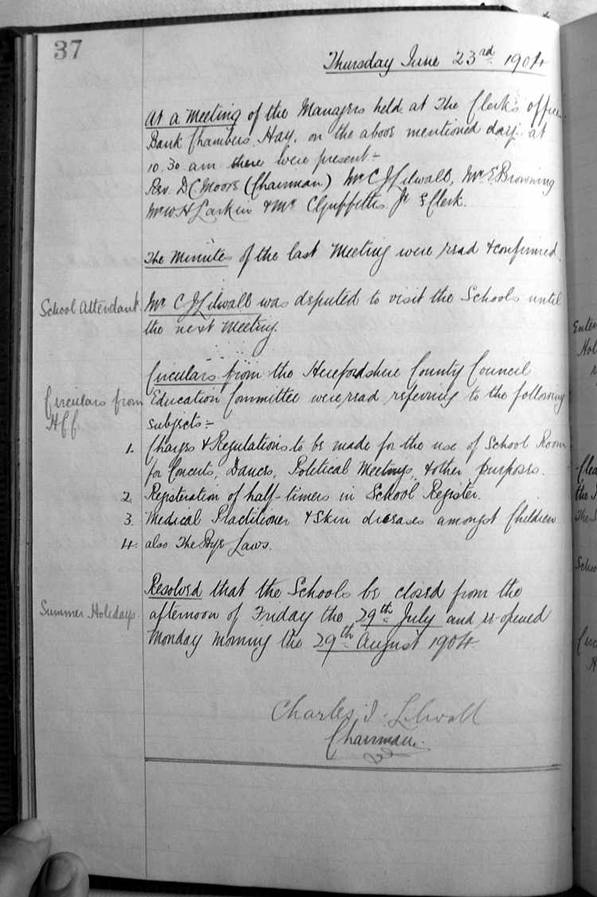 37
Thursday June 23rd 1904
At a Meeting of the Managers held at The Clerk's office
Bank Chambers, Hay, on the above mentioned day at
10.30 am there were present:-
Rev. D C Moore (Chairman) Mr C J Lilwall, Mr E Browning
Mr W H Larkin & Mr C Griffiths Jr Clerk.
The Minutes of the last Meeting were read & confirmed
School Attendant
Mr C J Lilwall was deputed to visit the Schools until
the next Meeting.
Circulars from
H C C
Circulars from the Herefordshire County Council
Education Committee were read referring to the following
subjects:-
1. Charges & Regulations to be made for the use of School Room
for Concerts, Dances, Political Meetings, & other purposes.
2. Registration of half-timers in School Register.
3. Medical Practitioner & Skin diseases amongst Children
4. also The Bye Laws.
Summer Holidays
Resolved that the Schools be closed from the
afternoon of Friday the 29th July and re-opened
Monday morning the 29th August 1904
Charles J. Lilwall
Chairman.